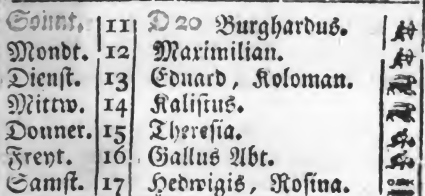 Sonnt. 11 D 20 Burghardus.
Mondt. 12 Maximilian.
Dienst. 13 Eduard, Koloman.
Mittw. 14 Kalistus.
Donner. 15 Theresia.
Freyt. 16 Gallus Abt.
Samst. 17 Hedwigis, Rosina.